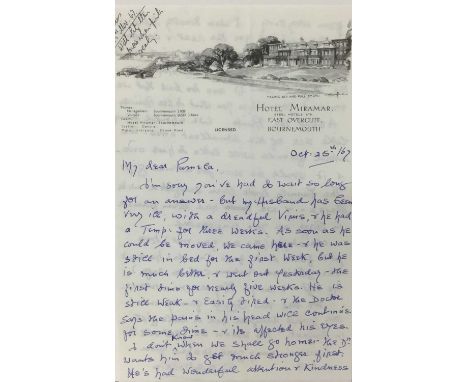 HOTEL MIRAMAR,
EAST OVERCLIFF,
BOURNEMOUTH
LICENSED
Oct. 25th/67
My dear Pamela,
I'm sorry you've had to wait so long
for an answer - but my husband has been
very ill, with a dreadful Virus, & he had
a Temp: for three weeks. As soon as he
could be moved, we came here - & he was
still in bed for the first week, but he
is much better & went out yesterday - the
first time for nearly five weeks. He is
still weak - & easily tired - & the Doctor
says the pains in his head will continue
for some time - & its affected his eyes.
I don't know when we shall go home - the Dr.
wants him to get much stronger first.
He's had wonderful attention & kindness